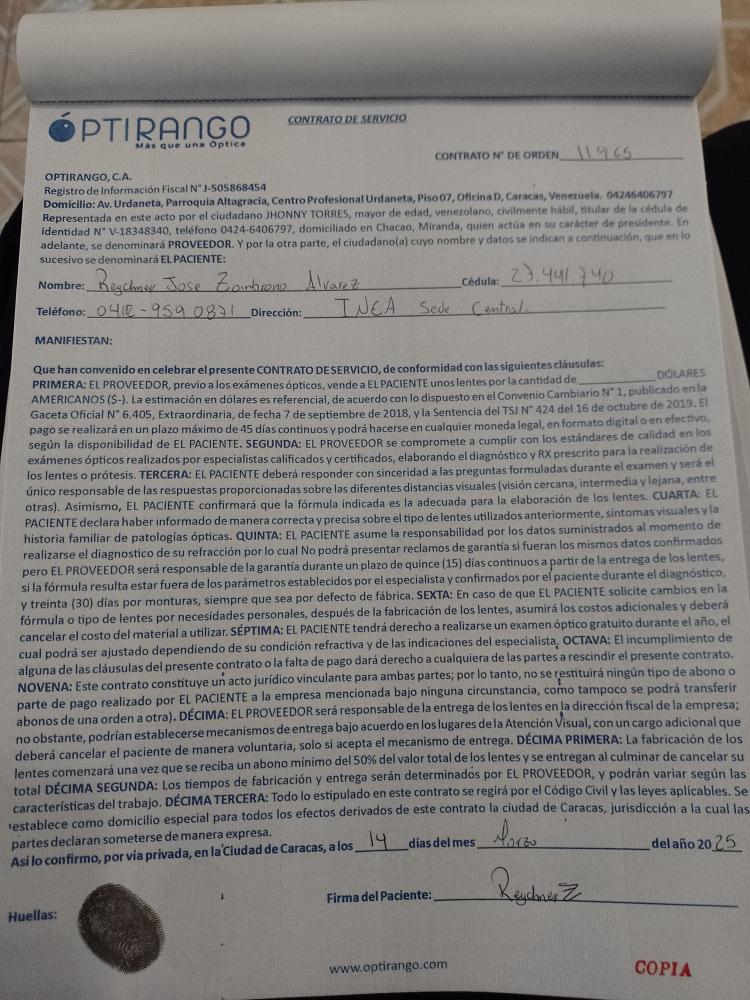 ÓPTIRANGO
Más que una Óptica
CONTRATO DE SERVICIO
CONTRATO N° DE ORDEN 11965
OPTIRANGO, C.A.
Registro de Información Fiscal N° J-505868454
Domicilio: Av. Urdaneta, Parroquia Altagracia, Centro Profesional Urdaneta, Piso 07, Oficina D, Caracas, Venezuela. 04246406797
Representada en este acto por el ciudadano JHONNY TORRES, mayor de edad, venezolano, civilmente hábil, titular de la cédula de
identidad N° V-18348340, teléfono 0424-6406797, domiciliado en Chacao, Miranda, quien actúa en su carácter de presidente. En
adelante, se denominará PROVEEDOR. Y por la otra parte, el ciudadano(a) cuyo nombre y datos se indican a continuación, que en lo
sucesivo se denominará EL PACIENTE:
Nombre: Reychner Jose Zambrano Alvarez Cédula: 27.441.740
Teléfono: 0412-959 0871 Dirección: INEA Sede Central.
MANIFIESTAN:
Que han convenido en celebrar el presente CONTRATO DE SERVICIO, de conformidad con las siguientes cláusulas:
PRIMERA: EL PROVEEDOR, previo a los exámenes ópticos, vende a EL PACIENTE unos lentes por la cantidad de ____________ DÓLARES
AMERICANOS ($-). La estimación en dólares es referencial, de acuerdo con lo dispuesto en el Convenio Cambiario N° 1, publicado en la
Gaceta Oficial N° 6.405, Extraordinaria, de fecha 7 de septiembre de 2018, y la Sentencia del TSJ N° 424 del 16 de octubre de 2019. El
pago se realizará en un plazo máximo de 45 días continuos y podrá hacerse en cualquier moneda legal, en formato digital o en efectivo,
según la disponibilidad de EL PACIENTE. SEGUNDA: EL PROVEEDOR se compromete a cumplir con los estándares de calidad en los
exámenes ópticos realizados por especialistas calificados y certificados, elaborando el diagnóstico y RX prescrito para la realización de
los lentes o prótesis. TERCERA: EL PACIENTE deberá responder con sinceridad a las preguntas formuladas durante el examen y será el
único responsable de las respuestas proporcionadas sobre las diferentes distancias visuales (visión cercana, intermedia y lejana, entre
otras). Asimismo, EL PACIENTE confirmará que la fórmula indicada es la adecuada para la elaboración de los lentes. CUARTA: EL
PACIENTE declara haber informado de manera correcta y precisa sobre el tipo de lentes utilizados anteriormente, síntomas visuales y la
historia familiar de patologías ópticas. QUINTA: EL PACIENTE asume la responsabilidad por los datos suministrados al momento de
realizarse el diagnostico de su refracción por lo cual No podrá presentar reclamos de garantía si fueran los mismos datos confirmados
pero EL PROVEEDOR será responsable de la garantía durante un plazo de quince (15) días continuos a partir de la entrega de los lentes,
si la fórmula resulta estar fuera de los parámetros establecidos por el especialista y confirmados por el paciente durante el diagnóstico,
y treinta (30) días por monturas, siempre que sea por defecto de fábrica. SEXTA: En caso de que EL PACIENTE solicite cambios en la
fórmula o tipo de lentes por necesidades personales, después de la fabricación de los lentes, asumirá los costos adicionales y deberá
cancelar el costo del material a utilizar. SÉPTIMA: EL PACIENTE tendrá derecho a realizarse un examen óptico gratuito durante el año, el
cual podrá ser ajustado dependiendo de su condición refractiva y de las indicaciones del especialista. OCTAVA: El incumplimiento de
alguna de las cláusulas del presente contrato o la falta de pago dará derecho a cualquiera de las partes a rescindir el presente contrato.
NOVENA: Este contrato constituye un acto jurídico vinculante para ambas partes; por lo tanto, no se restituirá ningún tipo de abono o
parte de pago realizado por EL PACIENTE a la empresa mencionada bajo ninguna circunstancia, como tampoco se podrá transferir
abonos de una orden a otra). DÉCIMA: EL PROVEEDOR será responsable de la entrega de los lentes en la dirección fiscal de la empresa;
no obstante, podrían establecerse mecanismos de entrega bajo acuerdo en los lugares de la Atención Visual, con un cargo adicional que
deberá cancelar el paciente de manera voluntaria, solo si acepta el mecanismo de entrega. DÉCIMA PRIMERA: La fabricación de los
lentes comenzará una vez que se reciba un abono mínimo del 50% del valor total de los lentes y se entregan al culminar de cancelar su
total DÉCIMA SEGUNDA: Los tiempos de fabricación y entrega serán determinados por EL PROVEEDOR, y podrán variar según las
características del trabajo. DÉCIMA TERCERA: Todo lo estipulado en este contrato se regirá por el Código Civil y las leyes aplicables. Se
establece como domicilio especial para todos los efectos derivados de este contrato la ciudad de Caracas, jurisdicción a la cual las
partes declaran someterse de manera expresa.
Así lo confirmo, por vía privada, en la Ciudad de Caracas, a los 14 días del mes Marzo del año 2025
Firma del Paciente: Reychner Z
Huellas:
www.optirango.com
COPIA